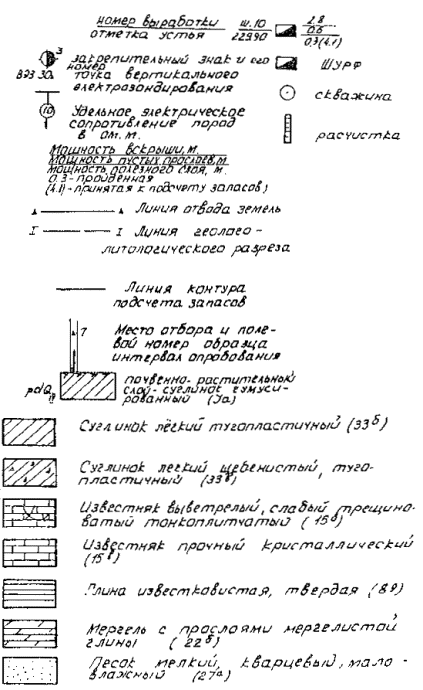 номер выработки ш.10 2,8
отметка устья 229.90 0,6
0,3(4.1)
3
закрепительный знак и его
номер ШУРФ
ВЭЗ 30. точка вертикального
электрозондирования
скважина
10 Удельное электрическое
сопротивление пород
в ом. м. расчистка
Мощность вскрыши, м.
Мощность пустых прослоев, м
мощность полезного слоя, м.
0.3 - пройденная
(4.1) - принятая к подсчету запасов)
Линия отвода земель
I I Линия геолого-
литологического разреза
Линия контура
подсчета запасов
7 Место отбора и поле-
вой номер образца
интервал опробования
pdQ IV почвенно-растительный
слой-суглинок гумуси-
рованный (9а)
Суглинок лёгкий тугопластичный (33б)
Суглинок легкий щебенистый, туго-
пластичный (33г)
Известняк выветрелый, слабый трещино-
ватый тонкоплитчатый (15а)
Известняк прочный кристаллический
(15в)
Глина известковистая, твердая (8д)
Мергель с прослоями мергелистой
глины (22б)
Песок мелкий, кварцевый, мало-
влажный (27а)